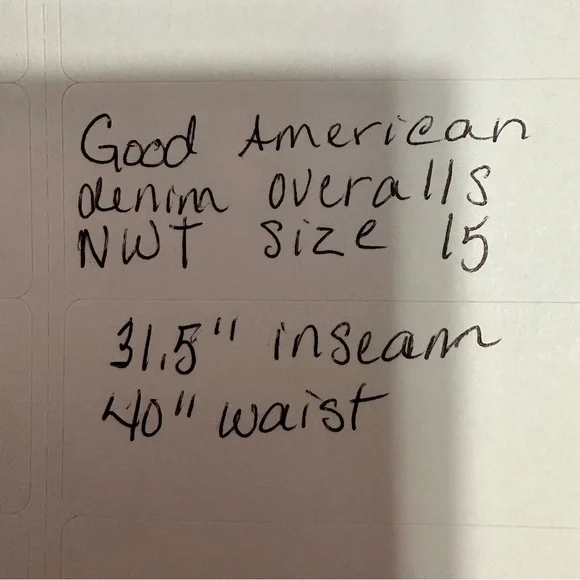 Good American
denim overalls
NWT size 15
31.5" inseam
40" waist